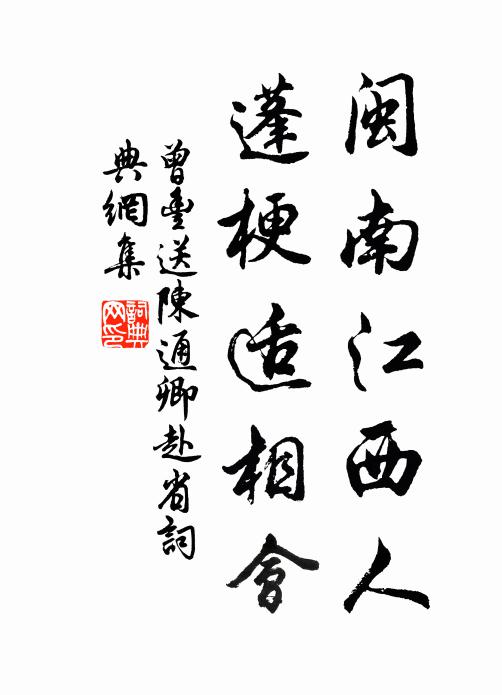 闽南江西人
蓬梗适相會
曾豊送陳通卿赴省詞
典網集
詞典网印